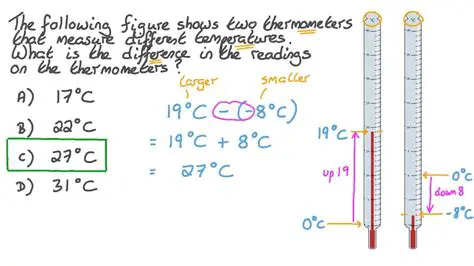 The following figure shows two thermometers
that measure different temperatures.
What is the difference in the readings
on the thermometers?
A) 17°C
B) 22°C
C) 27°C
D) 31°C
larger smaller
19°C - (-8°C)
= 19°C + 8°C
= 27°C
°C °C
19°C
up 19
0°C
0°C
down 8
-8°C